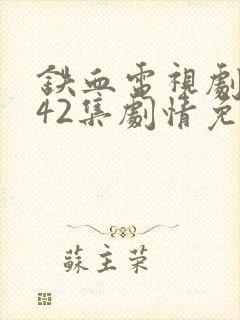 鉄血電視劇
42集劇情免
蘇主榮